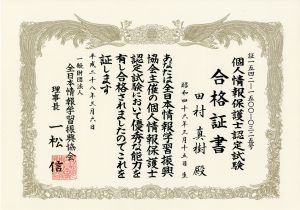 証一五四二-一五〇〇〇三二五号
個人情報保護士認定試験
合格証書
田村真樹 殿
昭和四十六年三月十五日 生
あなたは全日本情報学習振興
協会主催の個人情報保護士
認定試験において優秀な能力を
有し合格されましたのでこれを
証します
平成二十八年三月六日
一般財団法人
全日本情報学習振興協会
理事長 一松 信